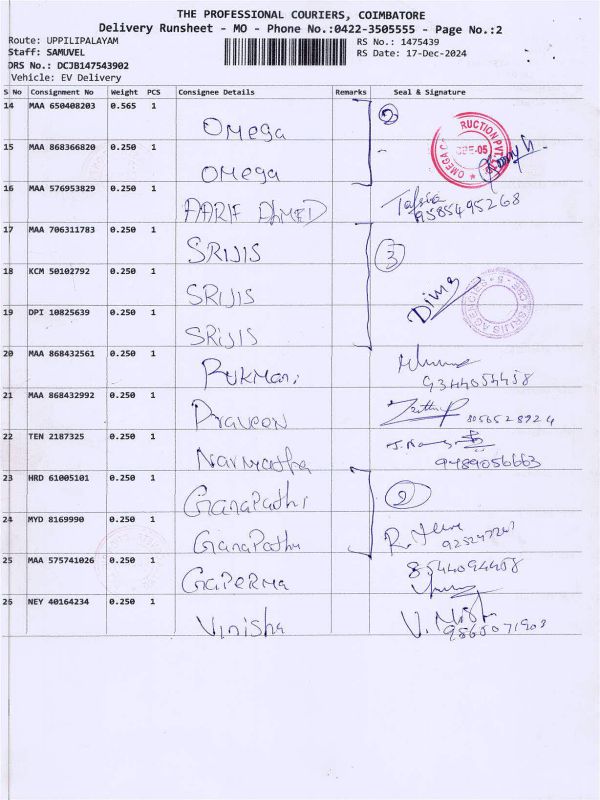 THE PROFESSIONAL COURIERS, COIMBATORE
Delivery Runsheet - MO - Phone No.:0422-3505555 - Page No.:2
Route: UPPILIPALAYAM
Staff: SAMUVEL
DRS No.: DCJB147543902
Vehicle: EV Delivery
RS No.: 1475439
RS Date: 17-Dec-2024
S No Consignment No Weight PCS Consignee Details Remarks Seal & Signature
14 MAA 650408203 0.565 1 Omega 2
15 MAA 868366820 0.250 1 Omega
16 MAA 576953829 0.250 1 AARIF AHMED 9585495268
17 MAA 706311783 0.250 1 SRIJIS 3
18 KCM 50102792 0.250 1 SRIJIS
19 DPI 10825639 0.250 1 SRIJIS
SRIJIS AGENCIES CBE-5
20 MAA 868432561 0.250 1 Rukmani
21 MAA 868432992 0.250 1 Praveen 8056528924
22 TEN 2187325 0.250 1 9489056663
23 HRD 61005101 0.250 1 Ganapathi 2
24 MYD 8169990 0.250 1
25 MAA 575741026 0.250 1 8544094458
26 NEY 40164234 0.250 1 Vinisha